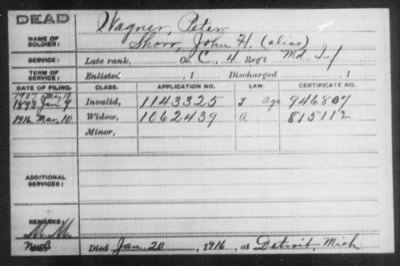 DEAD
Wagner, Peter
NAME OF SOLDIER: Shorr, John H. (alias)
SERVICE: Late rank, Co. C, 4 Reg't Md. Inf
TERM OF SERVICE: Enlisted , 1 Discharged , 1
DATE OF FILING. CLASS. APPLICATION NO. LAW. CERTIFICATE NO.
1907 May
1898 Jan. Invalid, 1143325 age 946807
1916 Mar, 10 Widow, 1062439 a 815112
Minor,
ADDITIONAL SERVICES:
REMARKS:
Died Jan 20, 1916, at Detroit, Mich